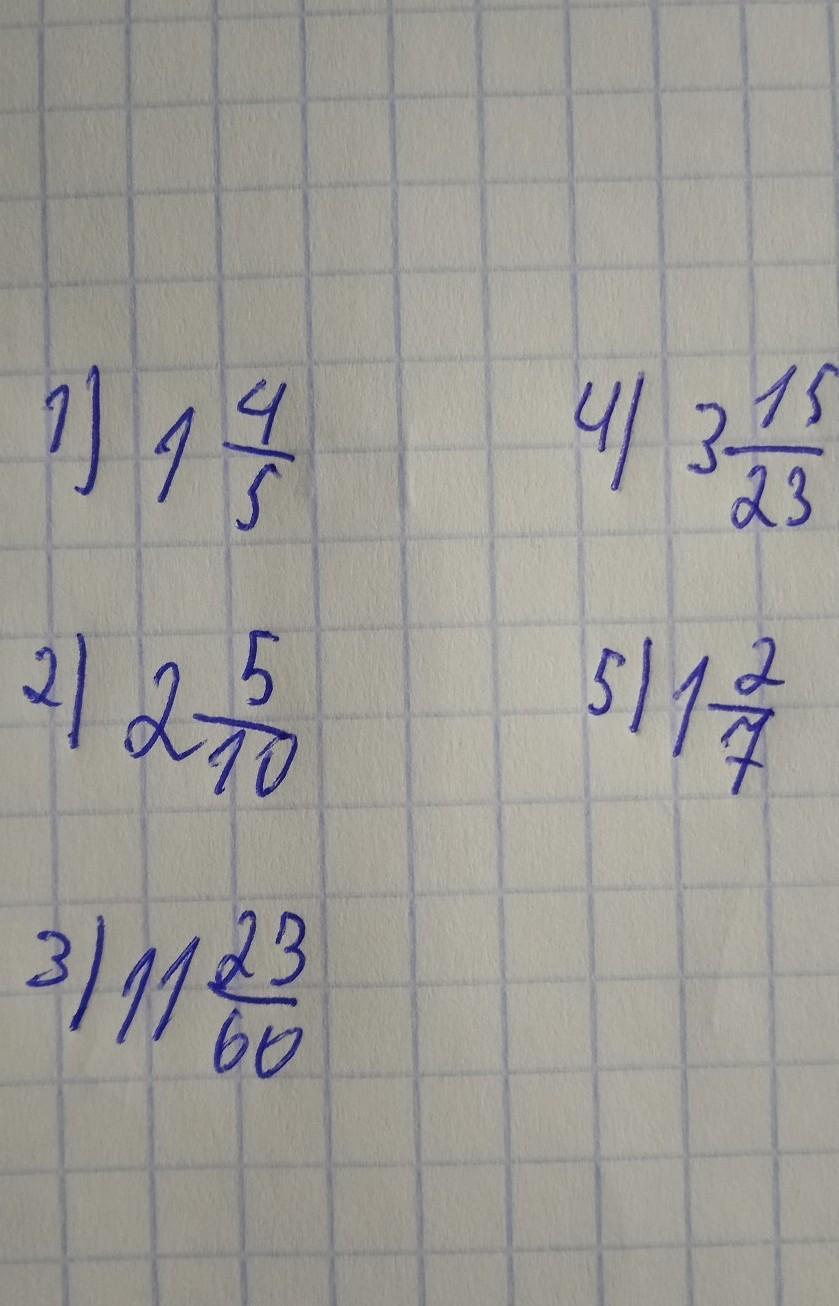 1) 1 4/5
2) 2 5/10
3) 11 23/60
4) 3 15/23
5) 1 2/7